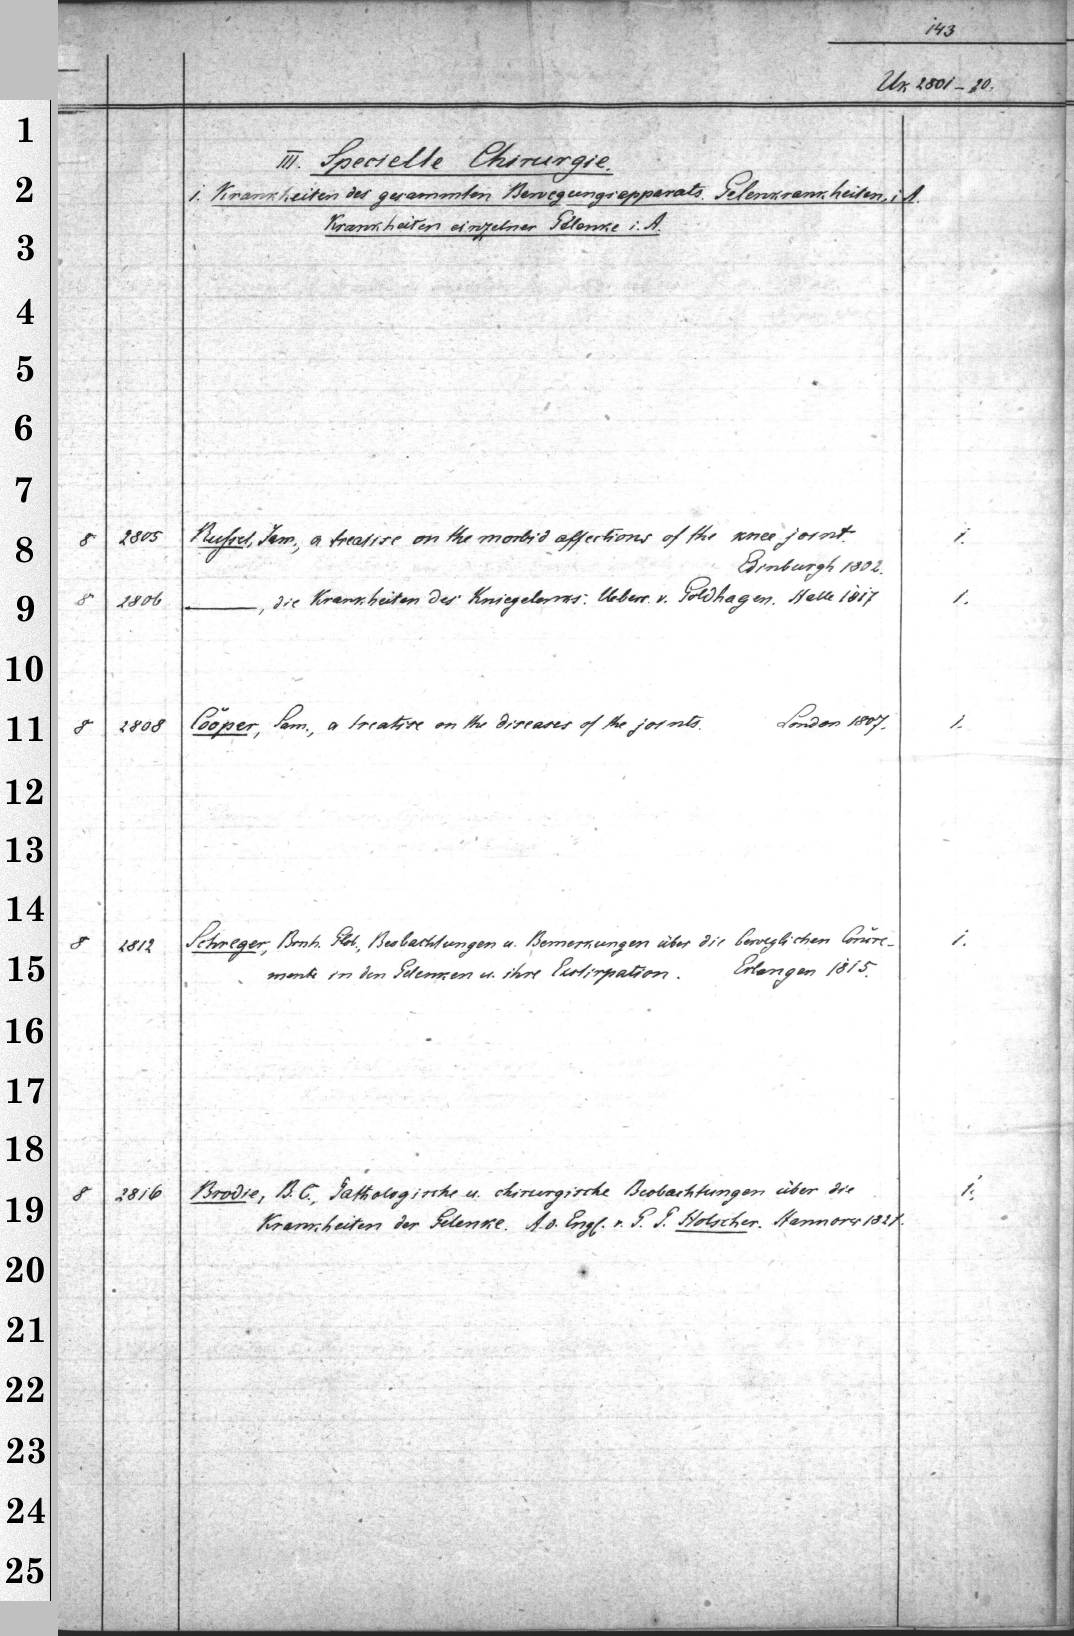 143
Uk 2801-20.
III. Specielle Chirurgie.
1. Krankheiten des gesammten Bewegungsapparats. Gelenkrankheiten. i. A.
Krankheiten einzelner Gelenke i. A.
8 2805 Russel, Jam., a treatise on the morbid affections of the knee joint 1.
Edinburgh 1802.
8 2806 ———, die Krankheiten des Kniegelenks. Uebers. v. Goldhagen. Halle 1817 1.
8 2808 Cooper, Sam., a treatise on the diseases of the joints. London 1807. 1.
8 2812 Schreger, Brnh. Glob., Beobachtungen u. Bemerkungen über die beweglichen Concre- 1.
mente in den Gelenken u. ihre Exstirpation. Erlangen 1815.
8 2816 Brodie, B. C., Pathologische u. chirurgische Beobachtungen über die 1.
Krankheiten der Gelenke. A. d. Engl. v. G. P. Holscher. Hannover 1821.
1
2
3
4
5
6
7
8
9
10
11
12
13
14
15
16
17
18
19
20
21
22
23
24
25